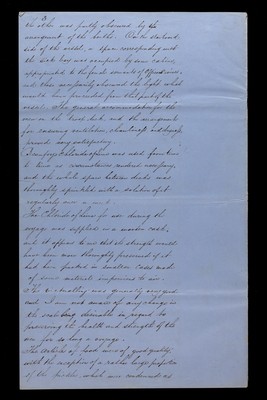 the other was partly obscured by the
arrangement of the berths. On the starboard
side of the vessel, a space corresponding with
the sick bay was occupied by one cabin,
appropriated to the female servants of officers' wives,
and thus partially obscured the light which
would have proceeded from that part of the
vessel. The general accommodation for the
men on the lower deck, and the arrangements
for ensuring ventilation, cleanliness and dryness
proved very satisfactory.
Chloride of Lime was used from time
to time as circumstances rendered necessary,
and the whole space between decks was
thoroughly sprinkled with a solution of it
regularly once a week.
The Chloride of Lime for use during the
voyage was supplied in a wooden cask,
and it appears to me that its strength would
have been more thoroughly preserved if it
had been packed in smaller cases made
of some material impervious to air.
The victualling was generally very good
and I am not aware of any change in
the scale being desirable in regard to
preserving the health and strength of the
men for so long a voyage.
The articles of food were of good quality
with the exception of a rather large proportion
of the biscuit which was condemned as